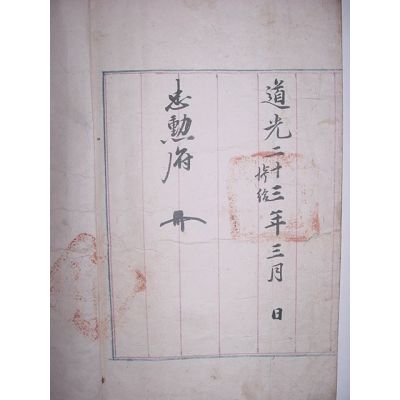 道光二十三年三月 日
忠勳府